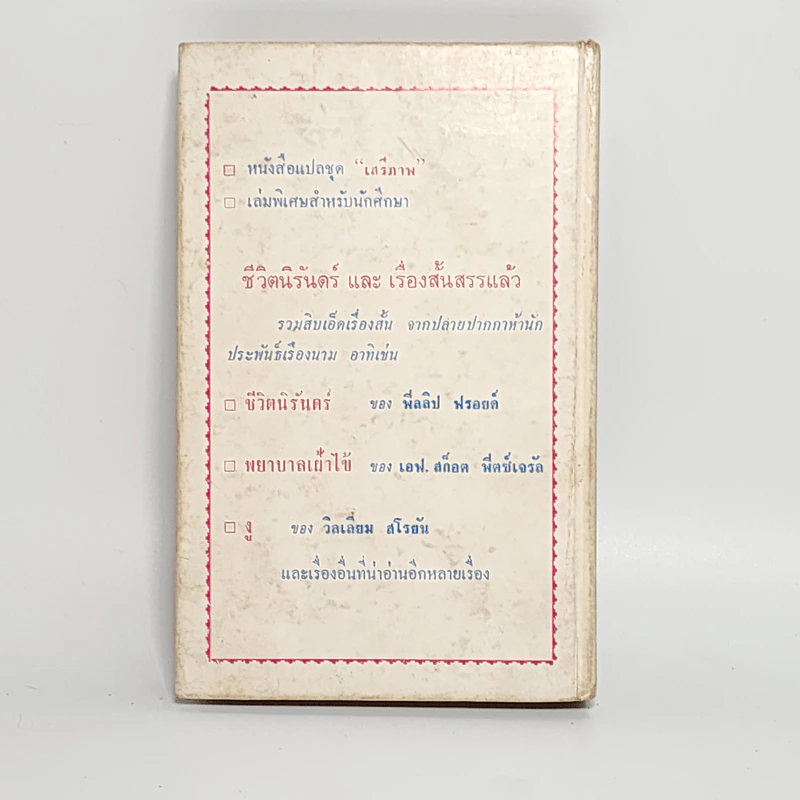 □ หนังสือแปลชุด “เสรีภาพ”
□ เล่มพิเศษสำหรับนักศึกษา
ชีวิตนิรันดร์ และ เรื่องสั้นสรรแล้ว
รวมสิบเอ็ดเรื่องสั้น จากปลายปากกาห้านัก
ประพันธ์เรืองนาม อาทิเช่น
□ ชีวิตนิรันดร์ ของ ฟิลลิป ฟรอยด์
□ พยาบาลเฝ้าไข้ ของ เอฟ. สก็อต ฟิตซ์เจรัล
□ งู ของ วิลเลี่ยม สโรยัน
และเรื่องอื่นที่น่าอ่านอีกหลายเรื่อง